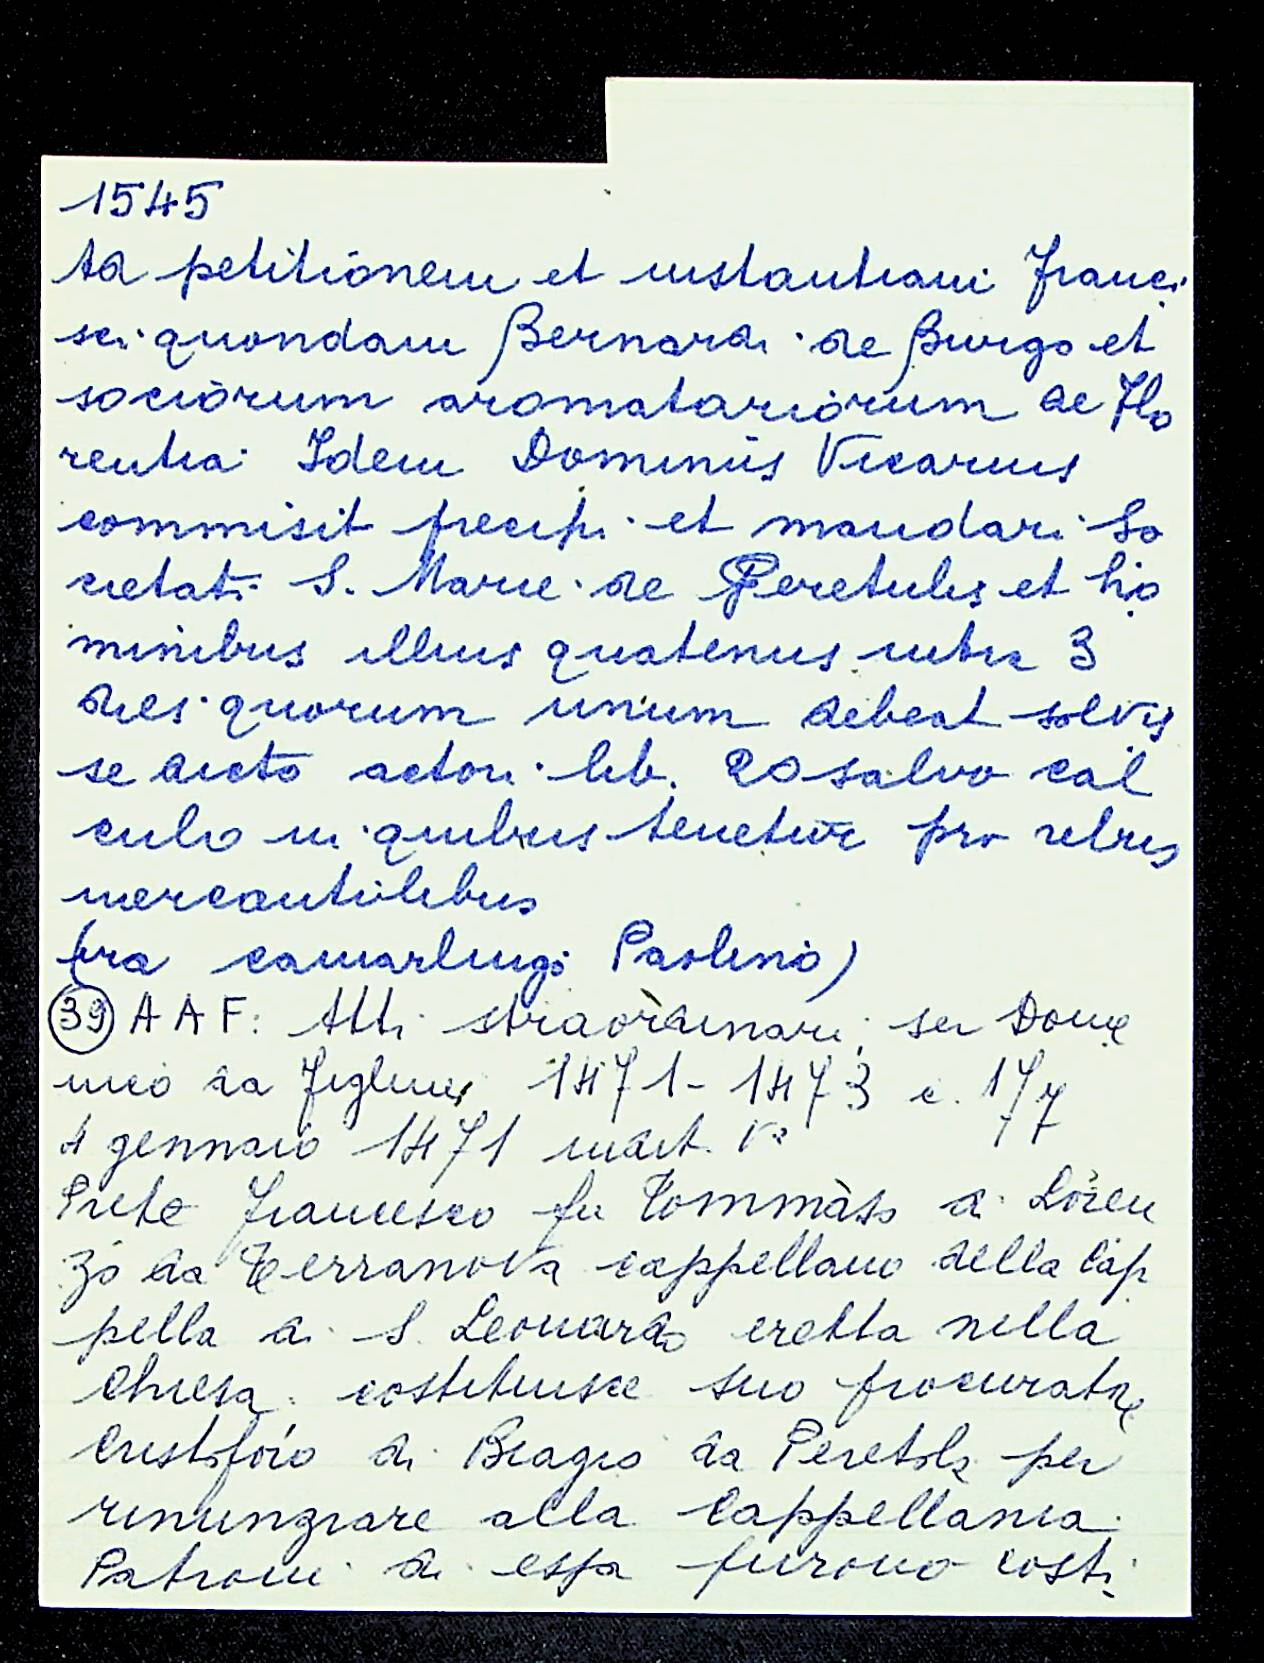 1545
Ad petitionem et instantiam Franci
sci quondam Bernardi de Burgo et
sociorum aromatariorum de Flo
rentia Idem Dominus Vicarius
commisit precipi et mandari So
cietati S. Marie de Peretulis et ho
minibus illius quatenus intra 3
dies quorum unum debeat solvis
se dicto actori lib. 20 salvo cal
culo in quibus tenetur pro rebus
mercantilibus
(era camarlingo Paolino)
39 A A F: Atti straordinari, ser Dome
nico da Figline, 1471-1473 c. 177
4 gennaio 1471 indict. Va
Prete Francesco fu Tommaso di Loren
zo da Terranova cappellano della Cap
pella di S. Leonardo eretta nella
Chiesa costituisce suo procuratore
Cristoforo di Biagio da Peretola per
rinunziare alla Cappellania.
Patroni di essa furono costi